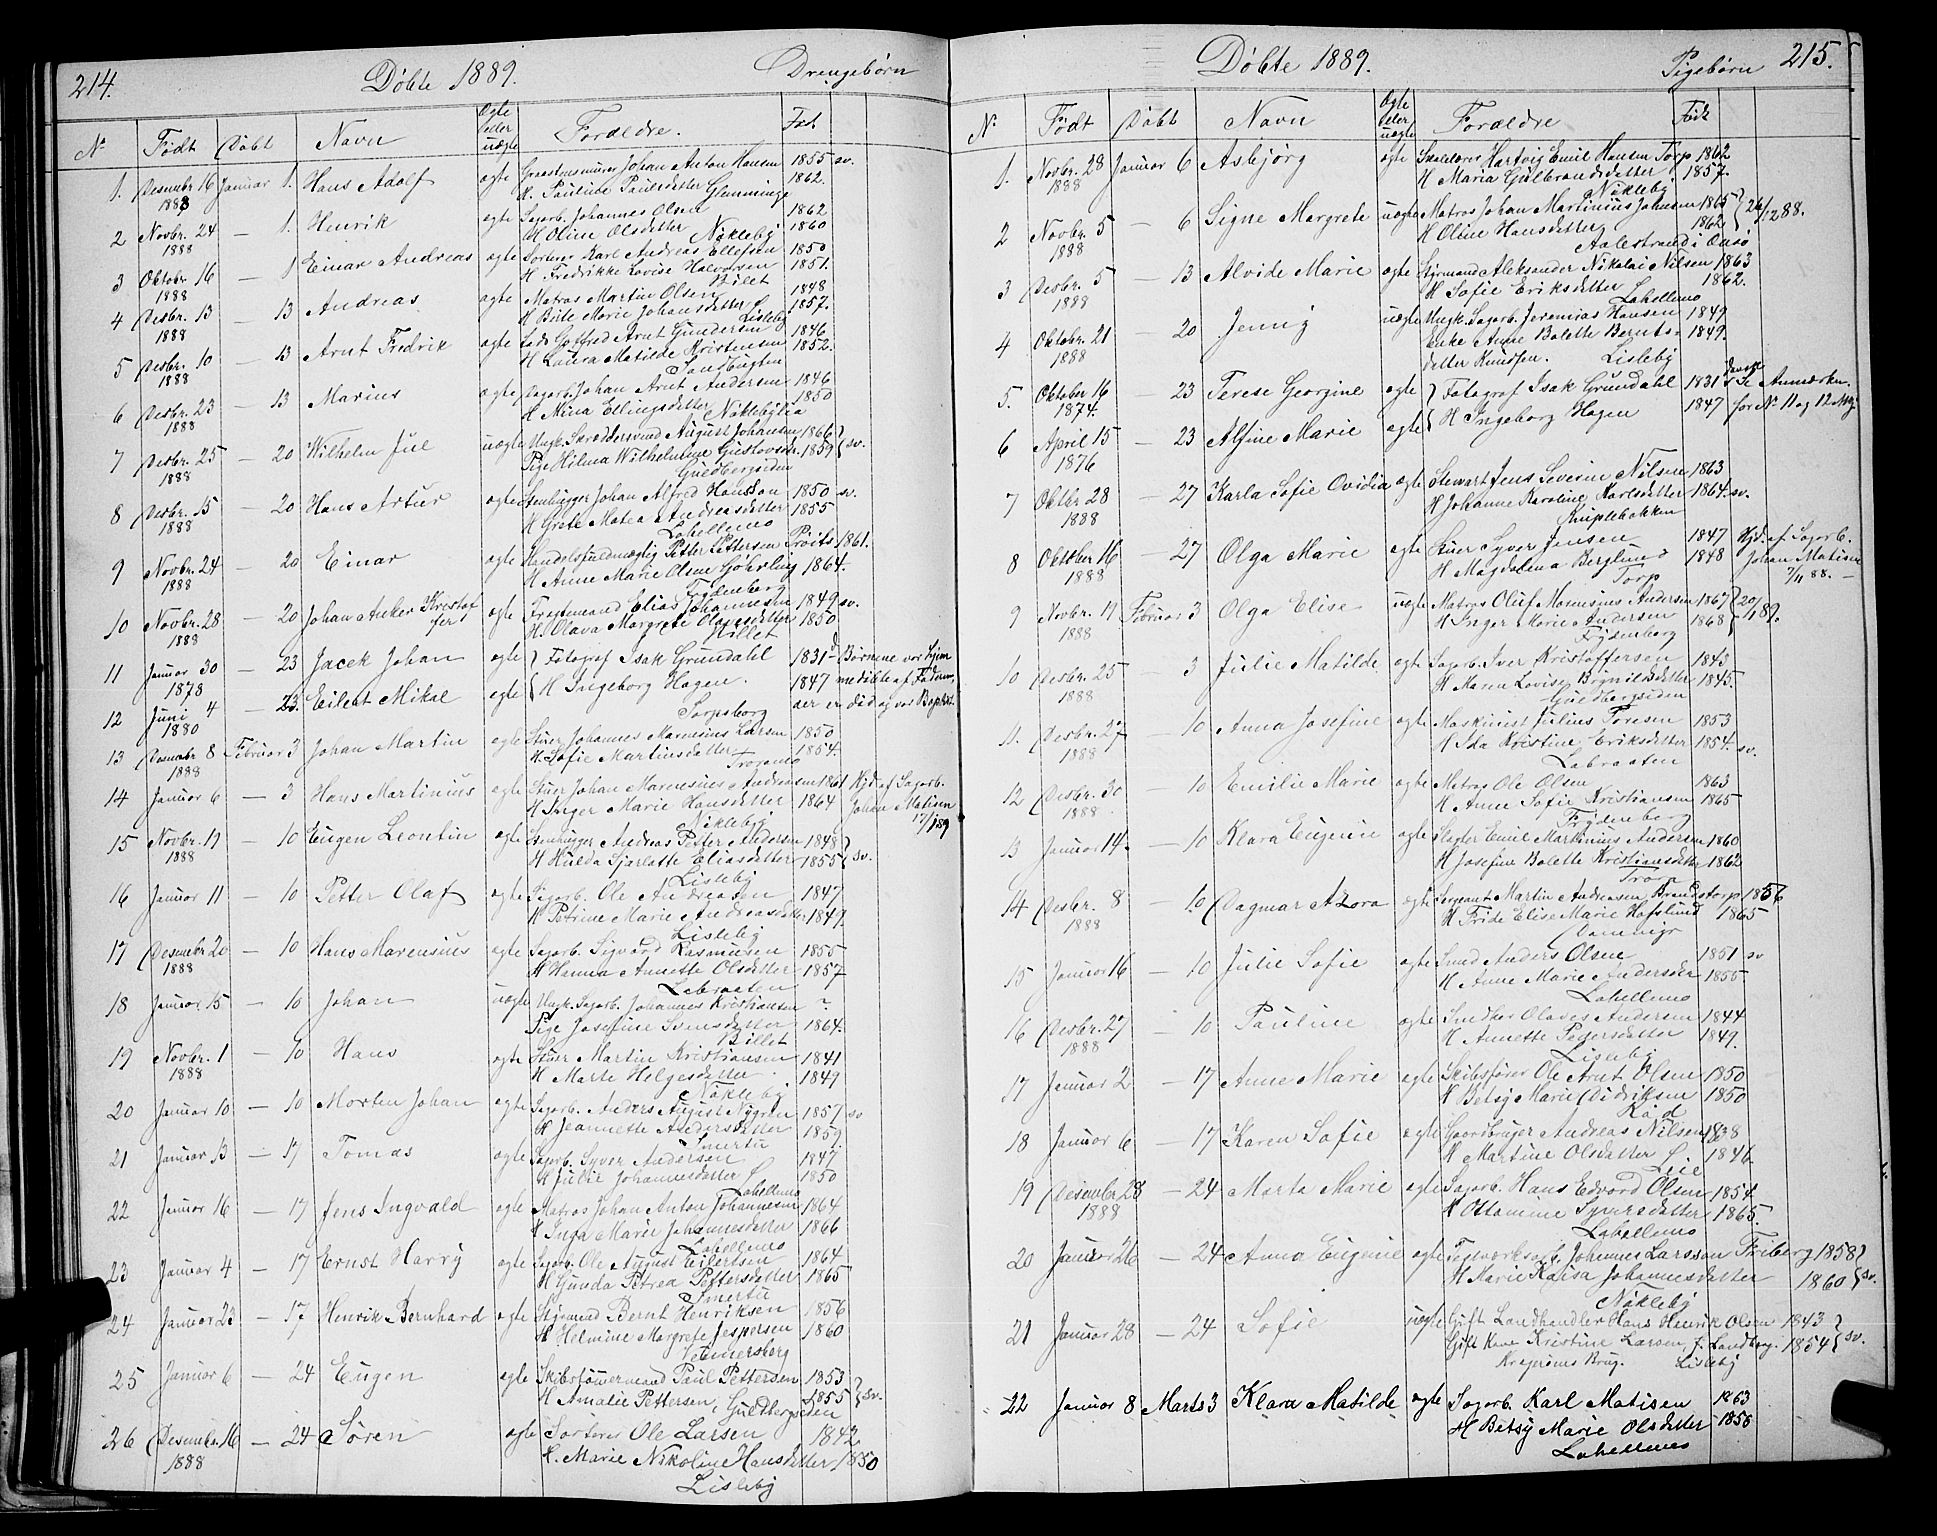 214.
Döbte 1889.
Drengebørn
No Födt Döbt Navn Ægte eller uægte Forældre. Født.
1. Desember 16 Januar 1. Hans Adolf ægte Johan Anton Hansen 1855 sv.
1888 H. Pauline Paulsdetter Glemminge 1862.
2 Novbr. 24 — 1. Henrik ægte Sagarb. Johannes Olsen 1862
1888 H Oline Olsdetter Nöklebÿ 1860
3 Oktobr. 16 — 1 Einar Andreas ægte Sorterer Karl Andreas Ellefsen 1850
1888 H Fredrikke Lovise Halvorsen 1851.
Bilet
4 Desbr. 13 — 13 Andreas ægte Matros Martin Olsen 1848
1888 H Berte Marie Johansdetter 1857.
Lislebÿ
5 Desbr. 10 — 13 Arnt Fredrik ægte Gotfred Arnt Gundersen 1846
1888 H Laura Matilde Kristensen 1852.
Sandbugten
6 Desbr. 23 — 13 Marius ægte Dagarb. Johan Arnt Andersen 1846
1888 H Mina Ellingsdetter 1850
Nöklebÿlia
7 Desbr. 25 — 20 Wilhelm Jul uægte Ungk. Skræddersvend August Johansen 1866
1888 Pige Hilma Wilhelmine Gustavsdt. 1859 } sv.
Guldbergsiden
8 Desbr. 15 — 20 Hans Artur ægte Stenhugger Johan Alfred Hansson 1850 sv.
1888 H Grete Matea Andreasdetter 1855
Lahellemo
9 Novbr. 24 — 20 Einar ægte Handelsfuldmægtig Petter Pettersen Pröits 1861.
1888 H Anne Marie Olsen Göhrling 1864.
Frÿdenberg
10 Novbr. 28 — 20 Johan Anker Kristoffer ægte Elias Johannesen 1849 sv.
1888 H. Olava Margrete Olavesdetter 1850
Billet
11 Januar 30 — 23 Jacek Johan ægte { Fotograf Isak Grundahl 1831 d Börnene vor hjemmedöbte af Faderen,
1878
12 Juni 4 — 23. Eilert Mikal ægte { H Ingeborg Hagen. 1847 der er död og var Baptist
1880 Sarpsborg
13 Desember 8 Februar 3 Johan Martin ægte Stuer Johannes Marensius Larsen 1850
1888 H. Sofie Martinsdetter 1854.
Trosemo
14 Januar 6 — 3 Hans Martinius ægte Stuer Johan Marensius Andersen 1861 Hjd. af Sagarb.
H Inger Marie Hansdetter 1864 Johan Matisen
Nöklebÿ 17/1 89
15 Novbr. 17 — 10 Eugen Leontin ægte Stenhugger Andreas Petter Andersen 1848
1888 H Hulda Sjarlatte Eliasdetter 1855 } sv.
Lislebÿ
16 Januar 11 — 10 Petter Olaf ægte Sagarb. Ole Andreasen 1847
H Petrine Marie Andreasdetter 1849.
Lislebÿ
17 Desember 20 — 10 Hans Marensius ægte Sagarb. Sigvard Rasmusen 1855
1888 H Hanna Annette Olsdetter 1857
Labraaten
18 Januar 15 — 10 Johan uægte Ungk. Sagarb. Johannes Kristiansen ?
Pige Josefine Svensdetter 1864.
Billet
19 Novbr. 1 — 10 Hans ægte Stuer Martin Kristiansen 1841
1888 H Marte Helgesdetter 1849
Nöklebÿ
20 Januar 10 — 10 Morten Johan ægte Sagarb. Anders August Nÿgren 1857 sv
H Jeannette Andersdetter 1859.
Smertu
21 Januar 13 — 17 Tomas ægte Sagarb. Syver Andersen 1847
H Julie Johannesdetter 1850
Lahellemo
22 Januar 16 — 17 Jens Ingvald ægte Matros Johan Anton Johannesen 1864
H Inga Marie Johannesdetter 1866
Lahellemo
23 Januar 4 — 17 Ernst Harrÿ ægte Sagarb. Ole August Eilertsen 1864
H Gunda Petrea Pettersdetter 1865
Smertu
24 Januar 23 — 17 Henrik Bernhard ægte Styrmand Bernt Henriksen 1856
H Helmine Margrete Jespersen 1860
25 Januar 6 — 24 Eugen ægte Skibstömmermand Paul Pettersen 1853
H Amalie Pettersen, Guldbergsiden 1855 } sv.
26 Desember 16 — 24 Sören ægte Sorterer Ole Larsen 1842
1888 H. Marie Nikoline Hansdetter 1850
Lislebÿ
Döbte 1889.
Pigebørn 215.
No Födt Döbt Navn Ægte eller uægte Forældre Födt
1. Novbr. 28 Januar 6 Asbjörg ægte Skolelærer Hartvig Emil Hansen Torp 1862
1888 H Maria Gulbrandsdetter 1857.
Nöklebÿ
2 Novbr. 5 — 6 Signe Margrete uægte Matros Johan Martinius Johansen 1865 } 26/12 88.
1888 H Oline Hansdetter 1862
Aalestrand i Onsö
3 Desbr. 5 — 13 Alvide Marie ægte Styrmand Aleksander Nikolai Nilsen 1863
1888 H Sofie Eriksdetter 1862.
Lahellemo
4 Oktobr. 21 — 20 Jennÿ uægte Ungk. Sagarb. Jeremias Hansen 1849
1888 Enke Anne Bolette Berntsdetter Knudsen. 1849.
Lislebÿ
5. Oktober 16 — 23 Terese Georgine ægte } Fotograf Isak Grundahl 1831 Se Anmærkn.
1874.
6 April 15 — 23 Alfine Marie ægte { H Ingeborg Hagen 1847 for No 11 og 12 Mkj.
1876
7 Oktbr 28 — 27 Karla Sofie Ovidia ægte Stewart Jens Severin Nilsen 1863
1888 H Johanne Karoline Karlsdetter 1864. sv.
Kniplebakken
8 Oktober 16 — 27 Olga Marie ægte Stuer Syver Jensen 1847 Hjd. af Sagarb.
1888 H Magdalena Berglund 1848 Johan Matisen
Torp 7/11 88. —
9 Novbr. 17 Februar 3 Olga Elise uægte Matros Oluf Marensius Andersen 1867 } 20/1 89.
1888 H Inger Marie Andersen 1868
Frÿdenberg
10 Desbr. 25 — 3 Julie Matilde ægte Sagarb. Iver Kristoffersen 1843
1888 H Maren Lovise Börnilsdetter 1845.
Guldbergsiden
11. Desbr. 27 — 10 Anna Josefine ægte Maskinist Julius Toresen 1853
1888 H Ida Kristine Eriksdetter 1854. sv.
Labraaten
12 Desbr. 30 — 10 Emilie Marie ægte Matros Ole Olsen 1863
1888. H Anne Sofie Kristiansen 1865
Frÿdenberg
13 Januar 14. — 10 Klara Eugenie ægte Slagter Emil Martinius Andersen 1860
H Josefine Bolette Kristiansdetter 1862
14 Desbr. 8 — 10 Dagmar Alora ægte Sergeant Martin Andreasen Brandstorp 1856
1888 H Fride Elise Marie Hafslund 1865
15 Januar 16 — 10 Julie Sofie ægte Smed Anders Olsen 1851 sv
H Anne Marie Andersdtr 1855.
Lahellemo
16 Desbr. 27 — 10 Pauline ægte Snedker Olaves Andersen 1844
1888 H Annette Pedersdetter 1849.
Lislebÿ
17 Januar 2 — 17 Anne Marie ægte Skibsförer Ole Arnt Olsen 1850
H Betsÿ Marie Didriksen 1850
Röd
18 Januar 6 — 17 Karen Sofie ægte Gaardbruger Andreas Nilsen 1838
H Martine Olsdetter 1846
Leie
19 Desember 28 — 24 Marta Marie ægte Sagarb. Hans Edvard Olsen 1854.
1888 H Ottamine Syversdetter 1865.
Lahellemo
20 Januar 26 — 24 Anna Eugenie ægte Teglværksarb. Johannes Larsson Friberg 1858 }
H Marie Kaisa Johannesdetter 1860 } sv.
Nöklebÿ
21 Januar 28 — 24 Sofie uægte Gift Landhandler Hans Henrik Olsen 1843 }
Gift Kone Kristine Larsen, f. Landberg. 1854 } sv.
Kræpöens Brug. Lislebÿ
22 Januar 8 Marts 3 Klara Matilde ægte Sagarb. Karl Matisen 1863
H Betsÿ Marie Olsdetter 1856
Lahellemo